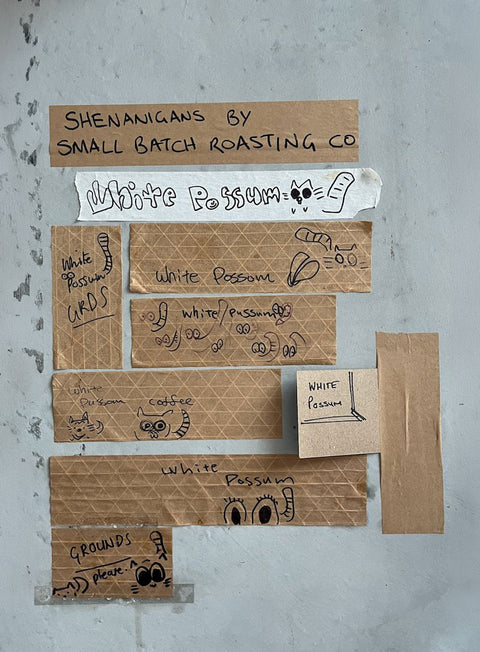 SHENANIGANS BY
SMALL BATCH ROASTING CO
White Possum
White
Possum
GRDS
White Possum
White/Pussum
White
Pussum coffee
WHITE
Possum
White
Possum
GROUNDS
please